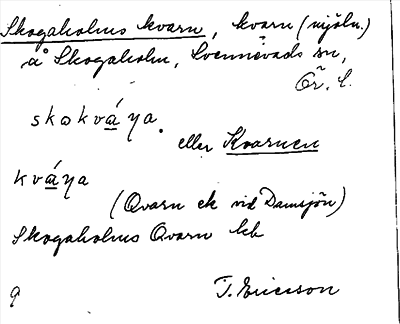 Skogaholms kvarn, kvarn (mjöln.)
å Skogaholm, Svennevads sn,
Ör. l.
skokváŋa.
eller Kvarnen
kváŋa
(Qvarn ek vid Damsjön)
Skogaholms Qvarn hkb
9 T. Ericsson